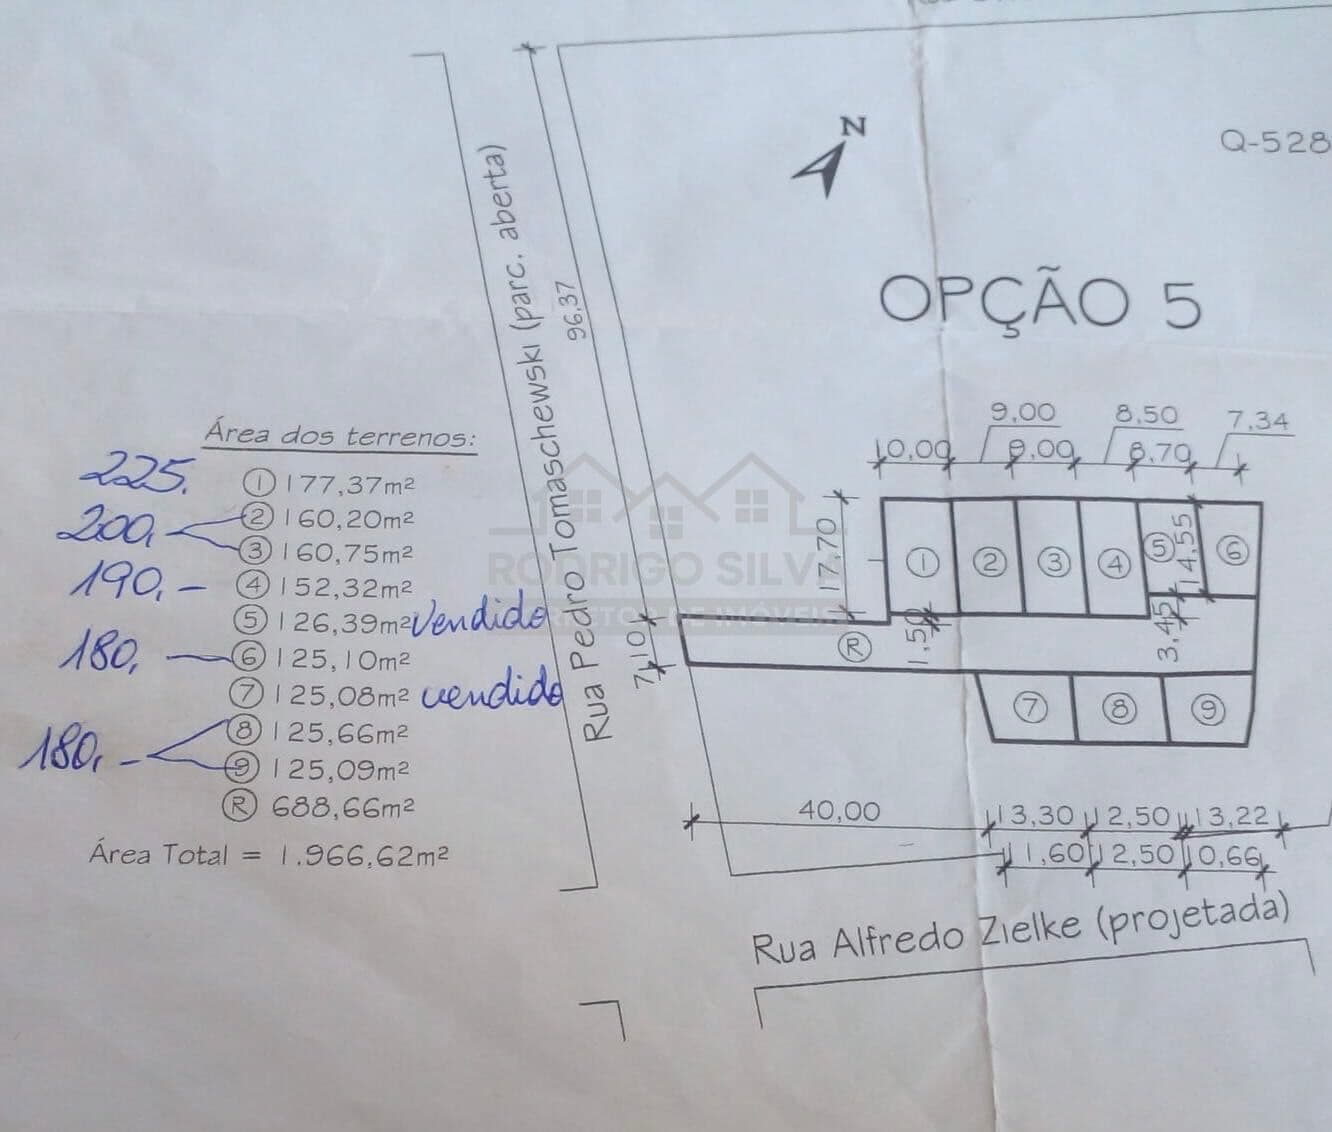 Q-528
N
OPÇÃO 5
96,37
Rua Pedro Tomaschewski (parc. aberta)
Área dos terrenos:
225. ① 177,37m²
200,- ② 160,20m²
③ 160,75m²
190,- ④ 152,32m²
⑤ 126,39m² Vendido
180, ⑥ 125,10m²
⑦ 125,08m² vendido
180,- ⑧ 125,66m²
⑨ 125,09m²
Ⓡ 688,66m²
Área Total = 1.966,62m²
9,00 8,50 7,34
10,00 9,00 8,70
17,70
① ② ③ ④ ⑤ 14,55 ⑥
RODRIGO SILVA
CORRETOR DE IMÓVEIS
7,10 Ⓡ 1,50 3,45
⑦ ⑧ ⑨
40,00 13,30 12,50 13,22
11,60 12,50 10,66
Rua Alfredo Zielke (projetada)